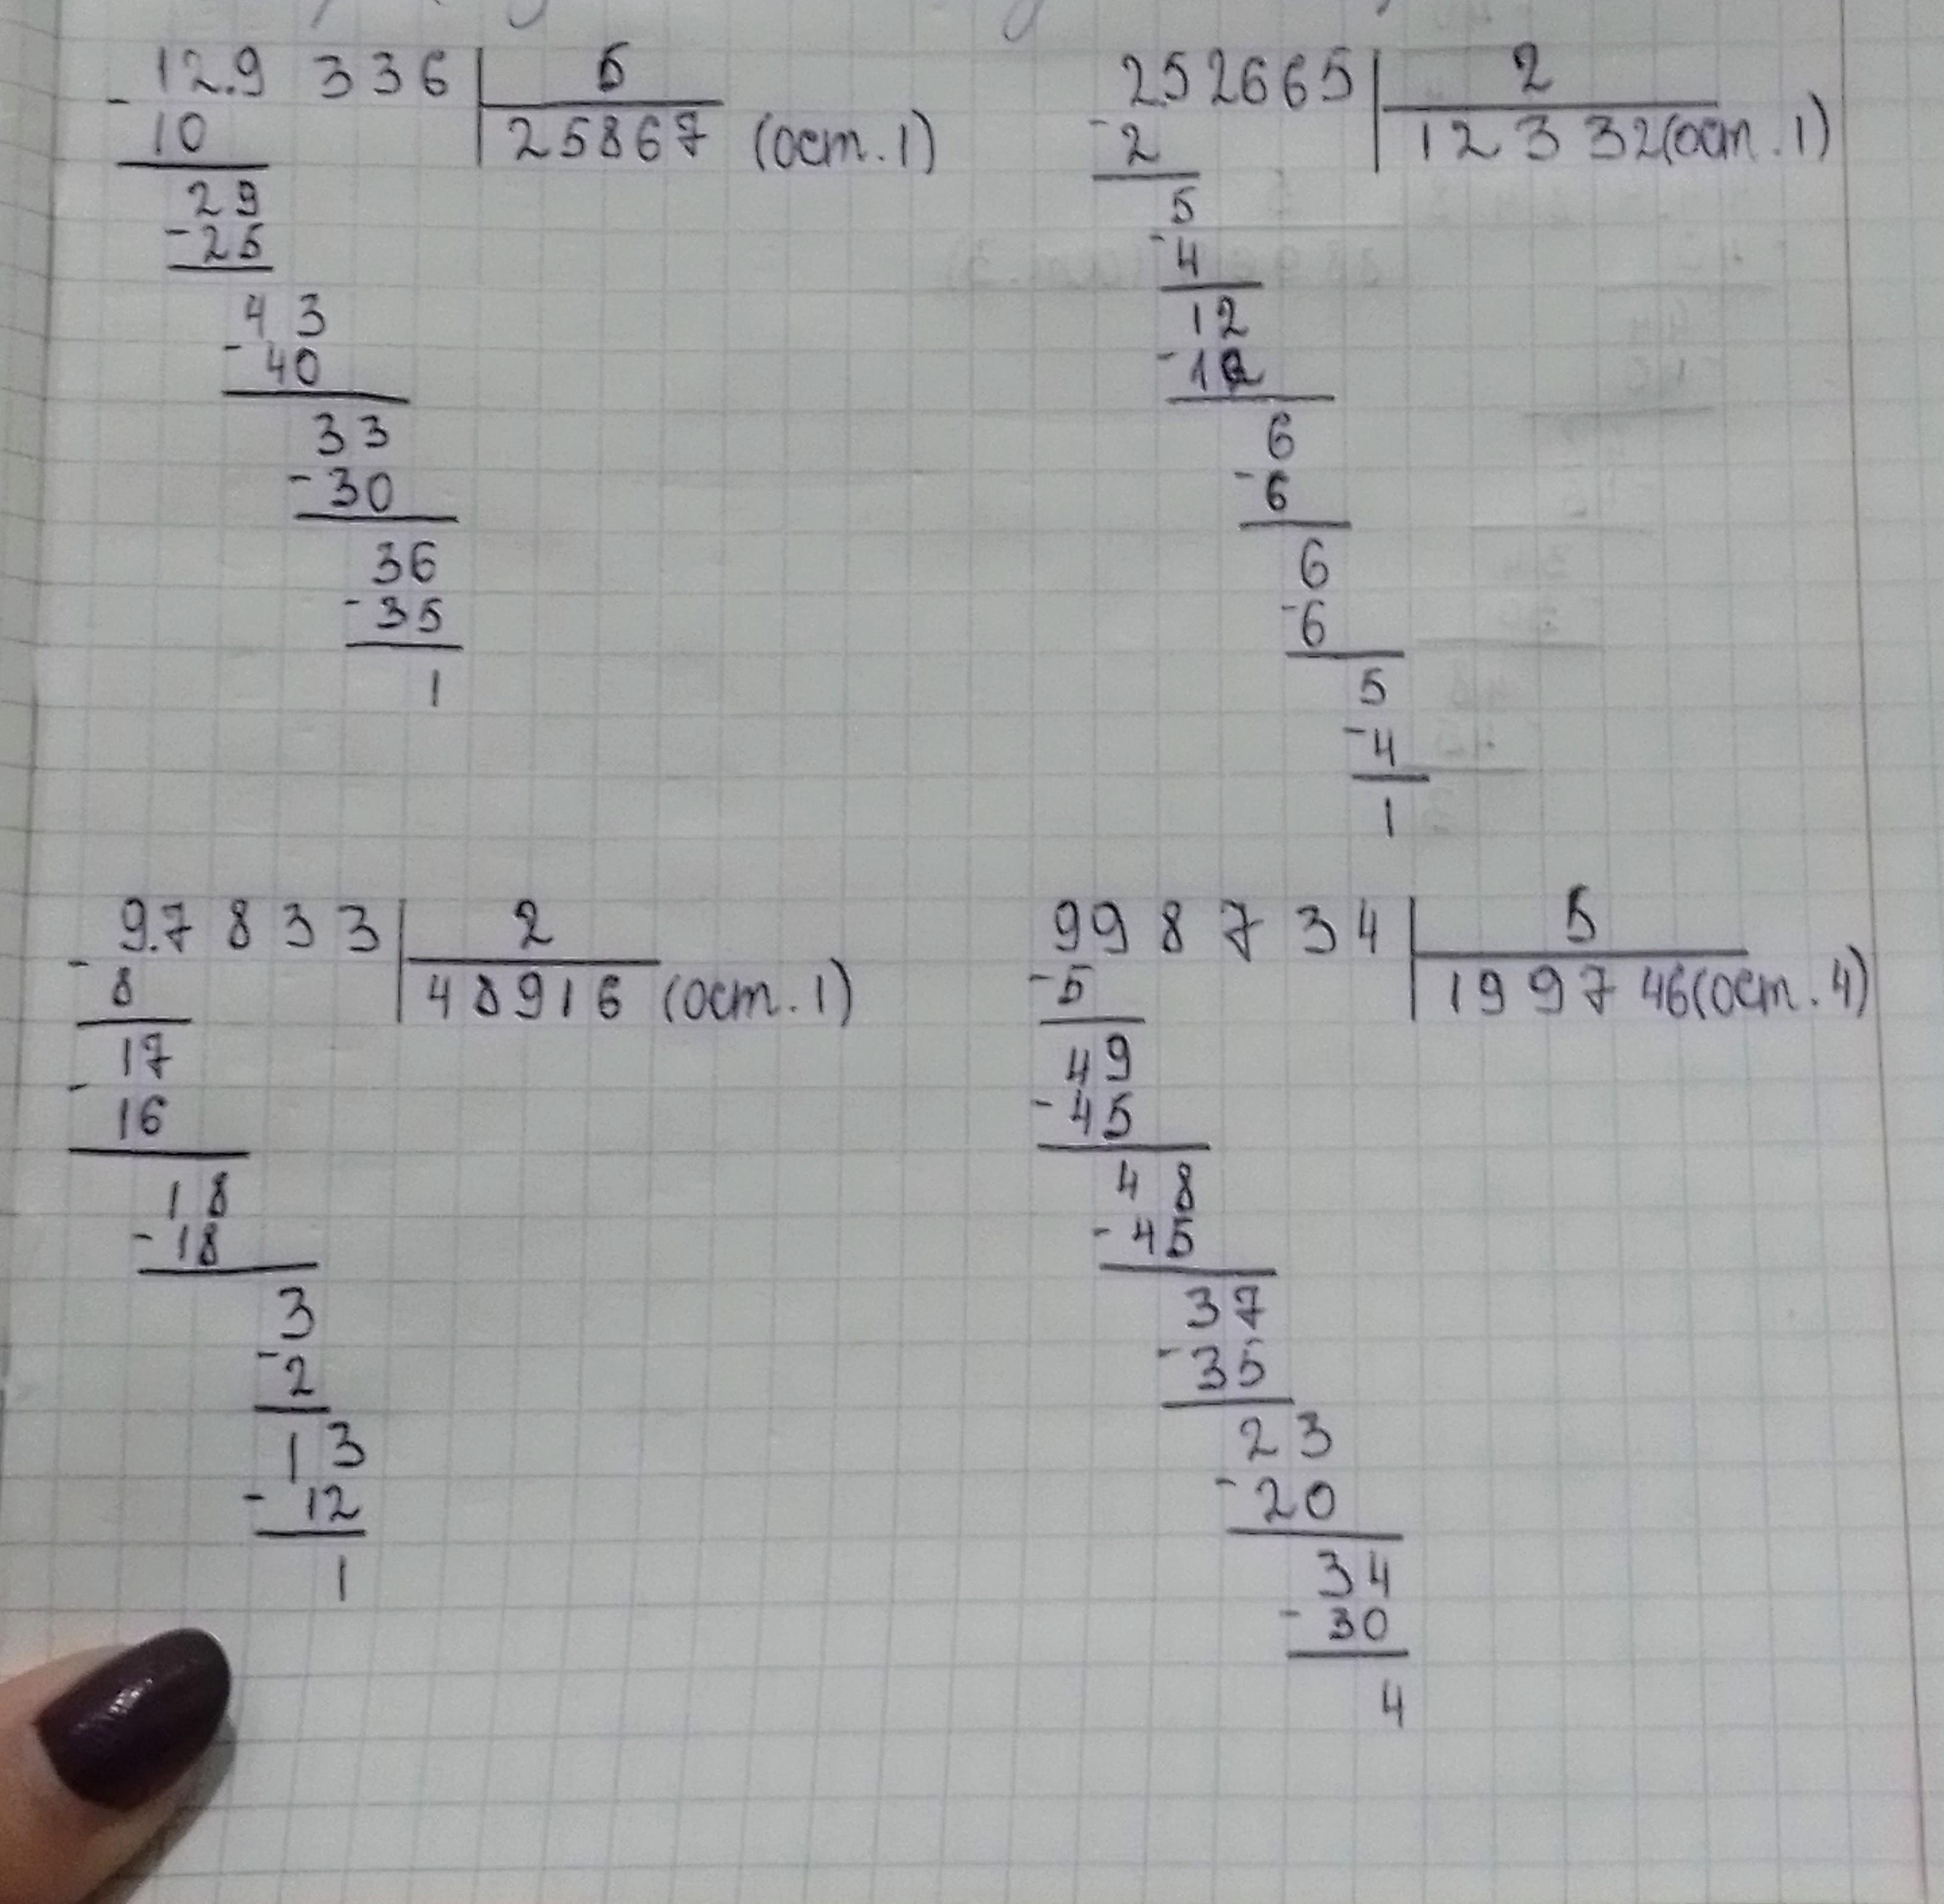 12.9 336 5
- 10 25867 (ост. 1)
29
- 25
43
- 40
33
- 30
36
- 35
1
252665 2
- 2 12 3 32(ост. 1)
5
- 4
12
- 12
6
- 6
6
- 6
5
- 4
1
9.7 8 3 3 2
- 8 48916 (ост. 1)
17
- 16
18
- 18
3
- 2
13
- 12
1
99 8 7 3 4 5
- 5 19 9 7 46(ост. 4)
49
- 45
48
- 45
37
- 35
23
- 20
34
- 30
4